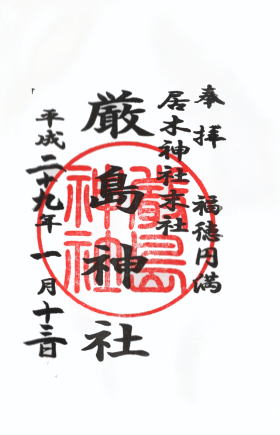 奉拝 福徳円満
居木神社末社
厳島神社
平成二十九年一月十三日
嚴島
神社